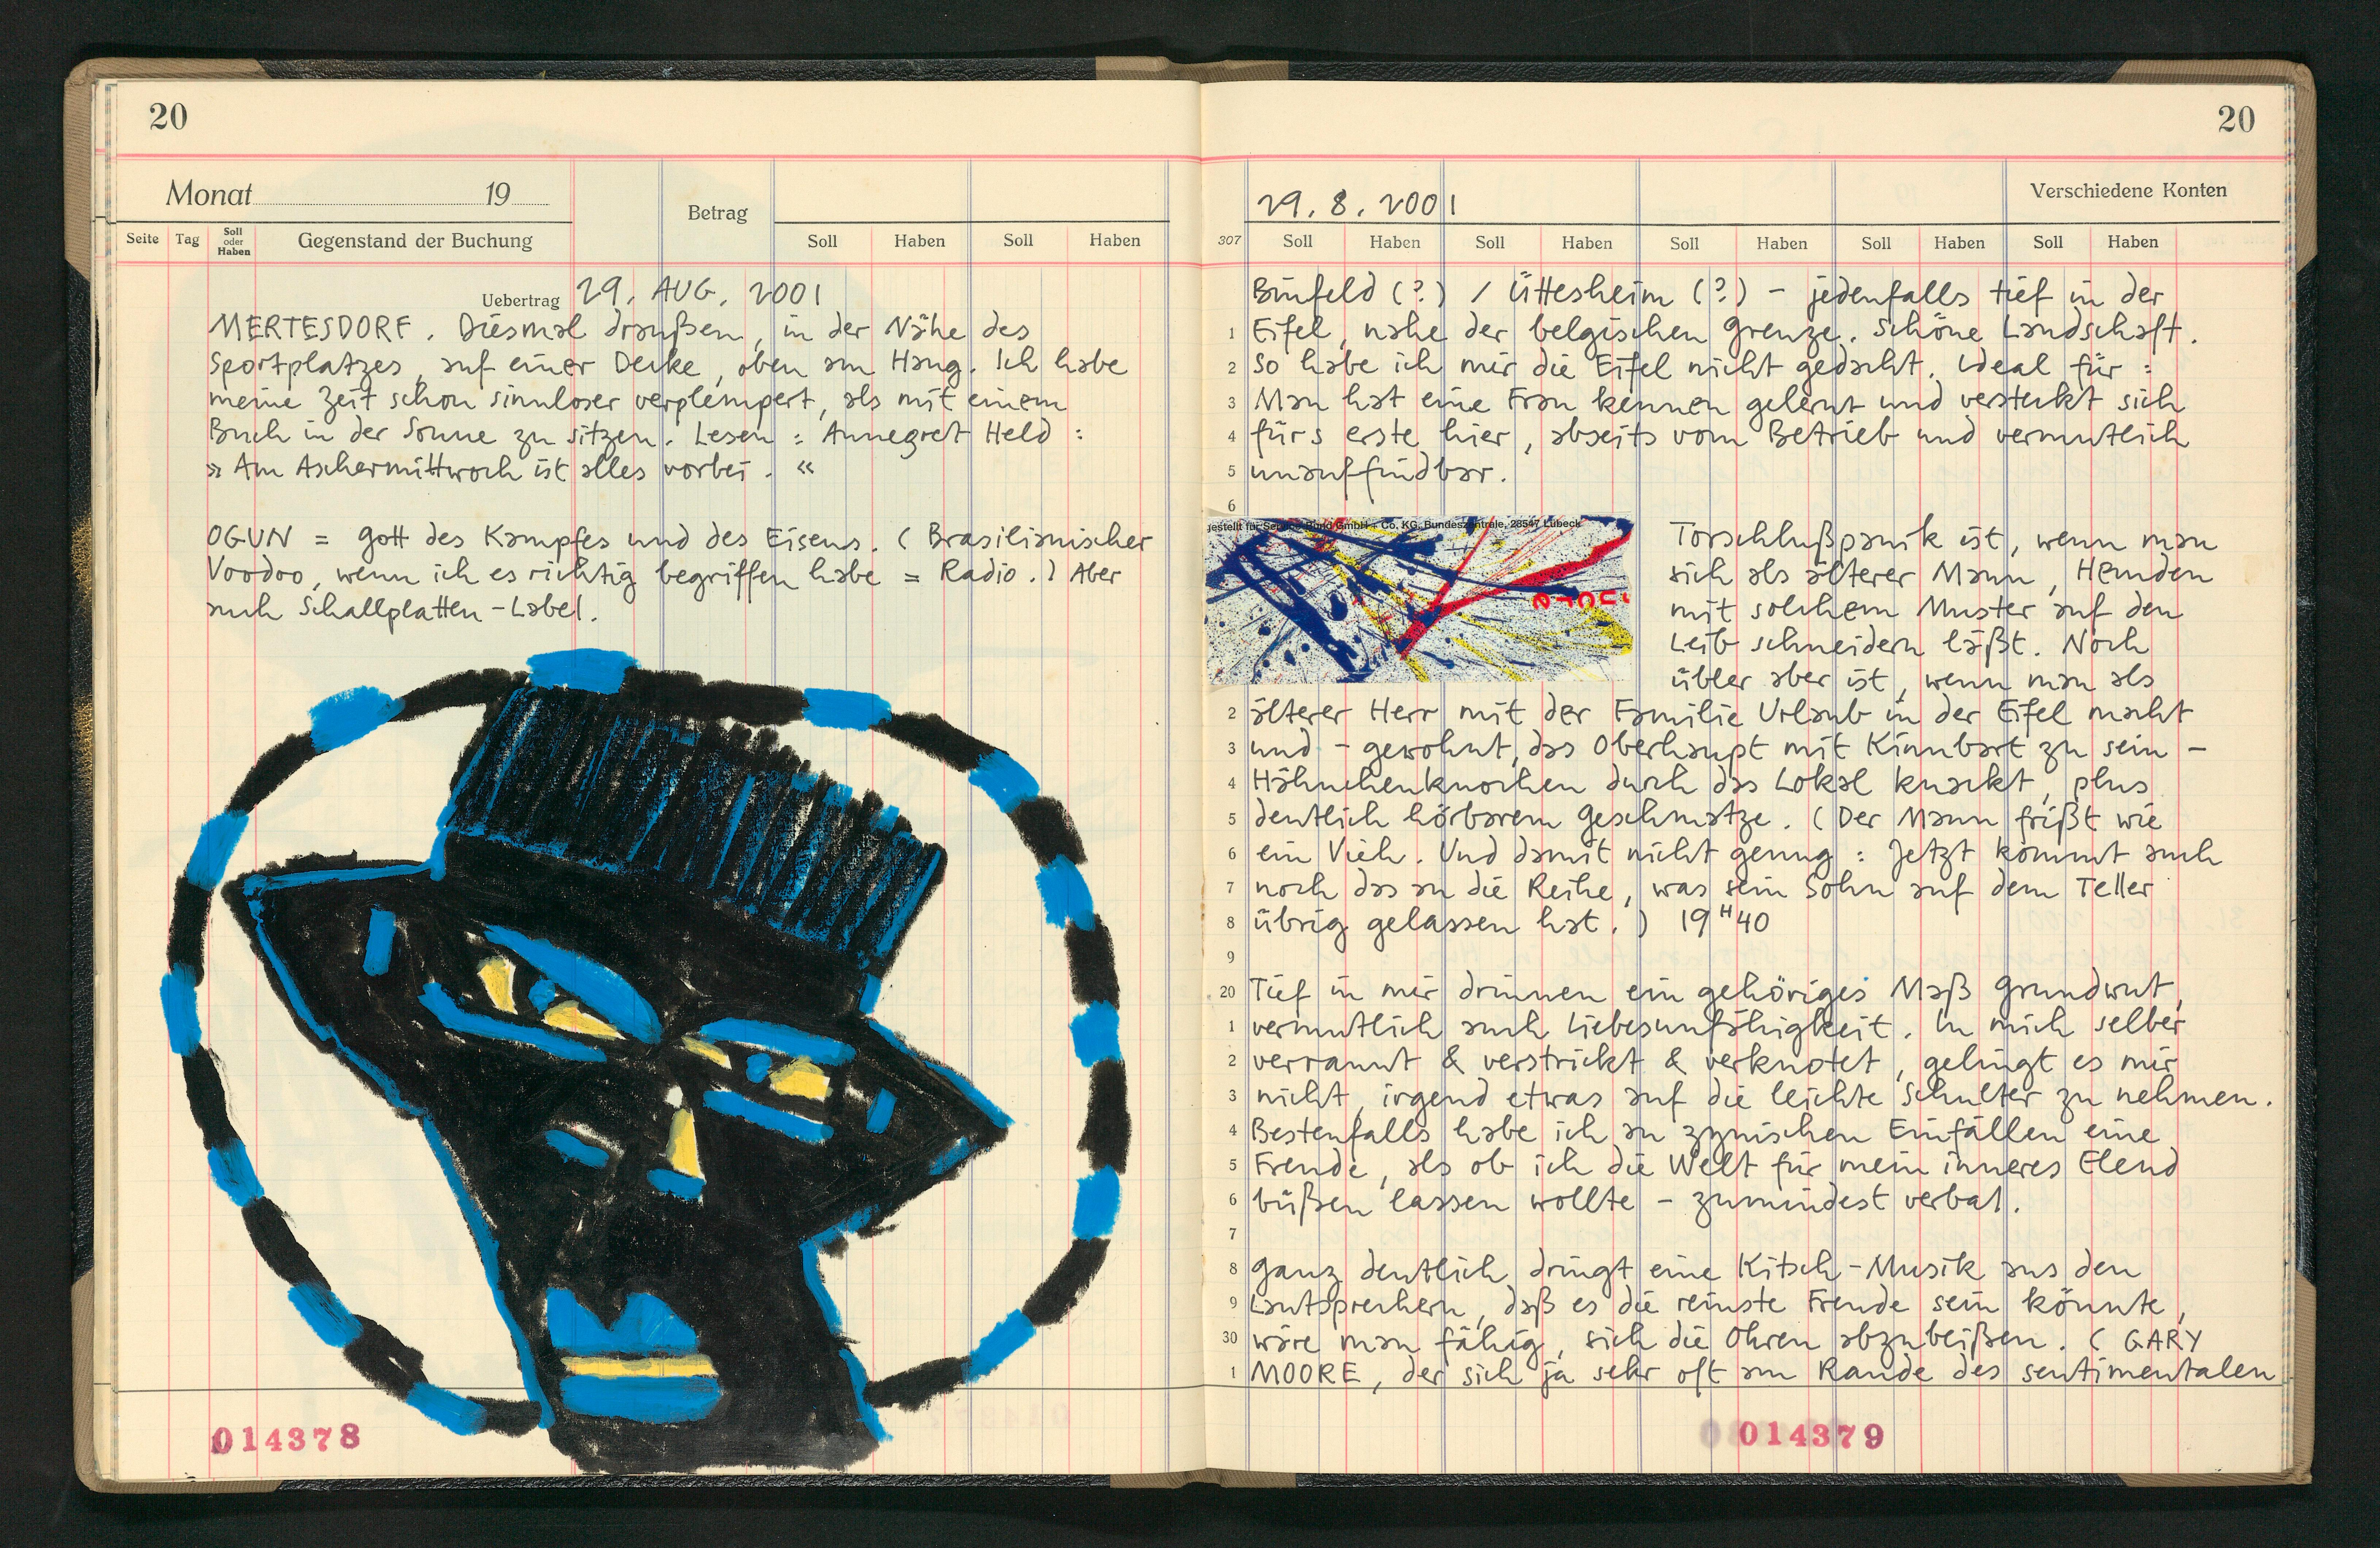 20
Monat 19
Betrag
Seite Tag Soll oder Haben Gegenstand der Buchung Soll Haben Soll Haben
Uebertrag 29. AUG. 2001
MERTESDORF. Diesmal draußen, in der Nähe des
Sportplatzes, auf einer Decke, oben am Hang. Ich habe
meine Zeit schon sinnloser verplempert, als mit einem
Buch in der Sonne zu sitzen. Lesen: Annegret Held:
» Am Aschermittwoch ist alles vorbei. «
OGUN = Gott des Kampfes und des Eisens. (Brasilianischer
Voodoo, wenn ich es richtig begriffen habe = Radio.) Aber
auch Schallplatten-Label.
014378
20
29. 8. 2001 Verschiedene Konten
307 Soll Haben Soll Haben Soll Haben Soll Haben Soll Haben
Binfeld (?) / Üttesheim (?) – jedenfalls tief in der
1 Eifel, nahe der belgischen Grenze. Schöne Landschaft.
2 So habe ich mir die Eifel nicht gedacht. Ideal für:
3 Man hat eine Frau kennen gelernt und versteckt sich
4 fürs erste hier, abseits vom Betrieb und vermutlich
5 unauffindbar.
6
gestellt für Service-Bund GmbH + Co. KG, Bundeszentrale, 28547 Lübeck
Torschlußpanik ist, wenn man
sich als älterer Mann, Hemden
mit solchem Muster auf den
Leib schneidern läßt. Noch
übler aber ist, wenn man als
2 älterer Herr mit der Familie Urlaub in der Eifel macht
3 und – gewohnt, das Oberhaupt mit Kinnbart zu sein –
4 Hähnchenknochen durch das Lokal knackt, plus
5 deutlich hörbarem Geschmatze. (Der Mann frißt wie
6 ein Vieh. Und damit nicht genug: Jetzt kommt auch
7 noch das an die Reihe, was sein Sohn auf dem Teller
8 übrig gelassen hat.) 19H40
9
20 Tief in mir drinnen ein gehöriges Maß Grundwut,
1 vermutlich auch Liebesunfähigkeit. In mich selber
2 verrannt & verstrickt & verknotet, gelingt es mir
3 nicht, irgend etwas auf die leichte Schulter zu nehmen.
4 Bestenfalls habe ich an zynischen Einfällen eine
5 Freude, als ob ich die Welt für mein inneres Elend
6 büßen lassen wollte – zumindest verbal.
7
8 Ganz deutlich dringt eine Kitsch-Musik aus den
9 Lautsprechern, daß es die reinste Freude sein könnte,
30 wäre man fähig, sich die Ohren abzubeißen. (GARY
1 MOORE, der sich ja sehr oft am Rande des sentimentalen
014379